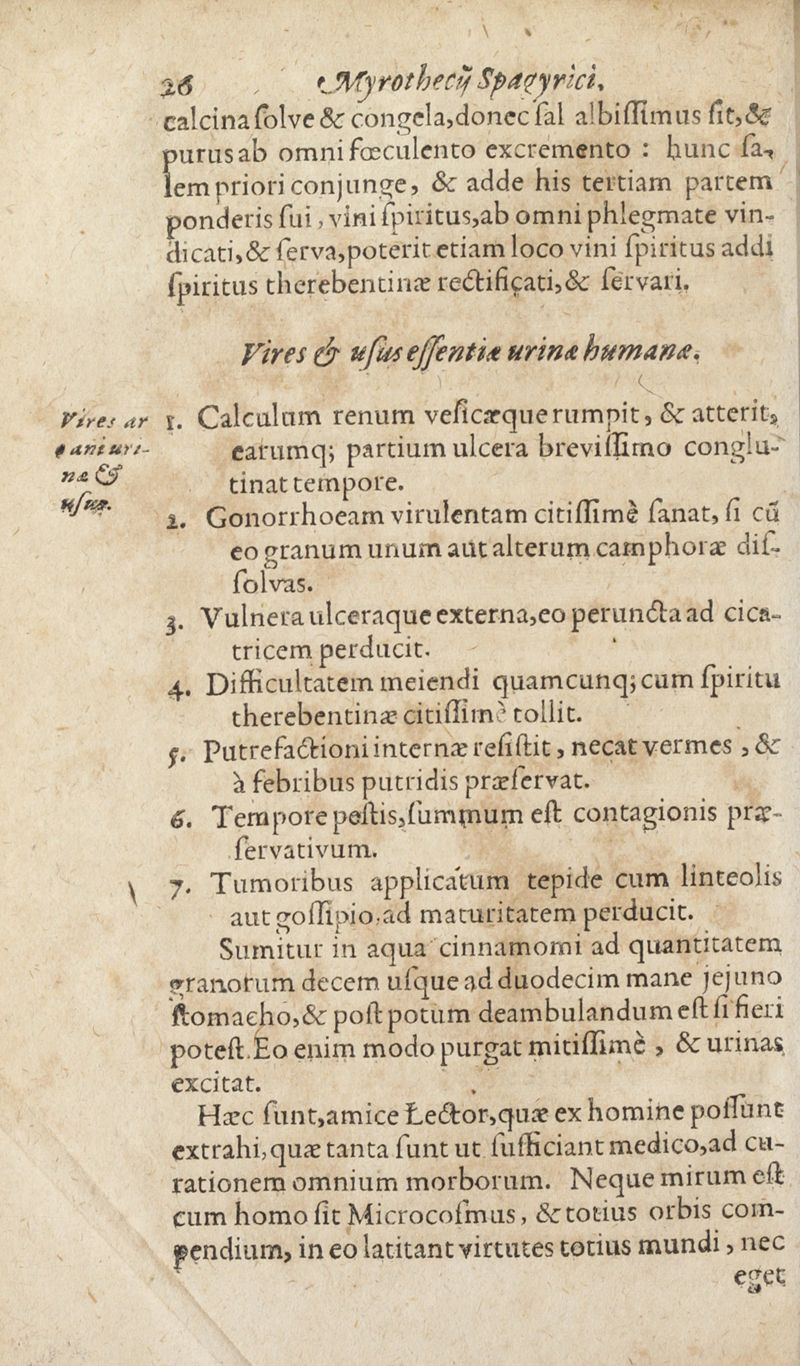 26 Myrothecij Spagyrici,
calcina ſolve & congela, donec ſal albiſſimus ſit, &
purus ab omni fœculento excremento : hunc ſa-
lem priori conjunge, & adde his tertiam partem
ponderis ſui, vini ſpiritus, ab omni phlegmate vin-
dicati, & ſerva, poterit etiam loco vini ſpiritus addi
ſpiritus therebentinæ rectificati, & ſervari.
Vires & uſus eſſentiæ urinæ humanæ.
Vires ar
cani uri-
næ &
uſus.
1. Calculum renum veſicæque rumpit, & atterit,
earumq; partium ulcera breviſſimo conglu-
tinat tempore.
2. Gonorrhoeam virulentam citiſſimè ſanat, ſi cū
eo granum unum aut alterum camphoræ diſ-
ſolvas.
3. Vulnera ulceraque externa, eo peruncta ad cica-
tricem perducit.
4. Difficultatem meiendi quamcunq; cum ſpiritu
therebentinæ citiſſimè tollit.
5. Putrefactioni internæ reſiſtit, necat vermes, &
à febribus putridis præſervat.
6. Tempore peſtis, ſummum eſt contagionis præ-
ſervativum.
7. Tumoribus applicatum tepide cum linteolis
aut goſſipio, ad maturitatem perducit.
Sumitur in aqua cinnamomi ad quantitatem
granorum decem uſque ad duodecim mane jejuno
ſtomacho, & poſt potum deambulandum eſt ſi fieri
poteſt. Eo enim modo purgat mitiſſimè, & urinas
excitat.
Hæc ſunt, amice Lector, quæ ex homine poſſunt
extrahi, quæ tanta ſunt ut ſufficiant medico, ad cu-
rationem omnium morborum. Neque mirum eſt
cum homo ſit Microcoſmus, & totius orbis com-
pendium, in eo latitant virtutes totius mundi, nec
eget